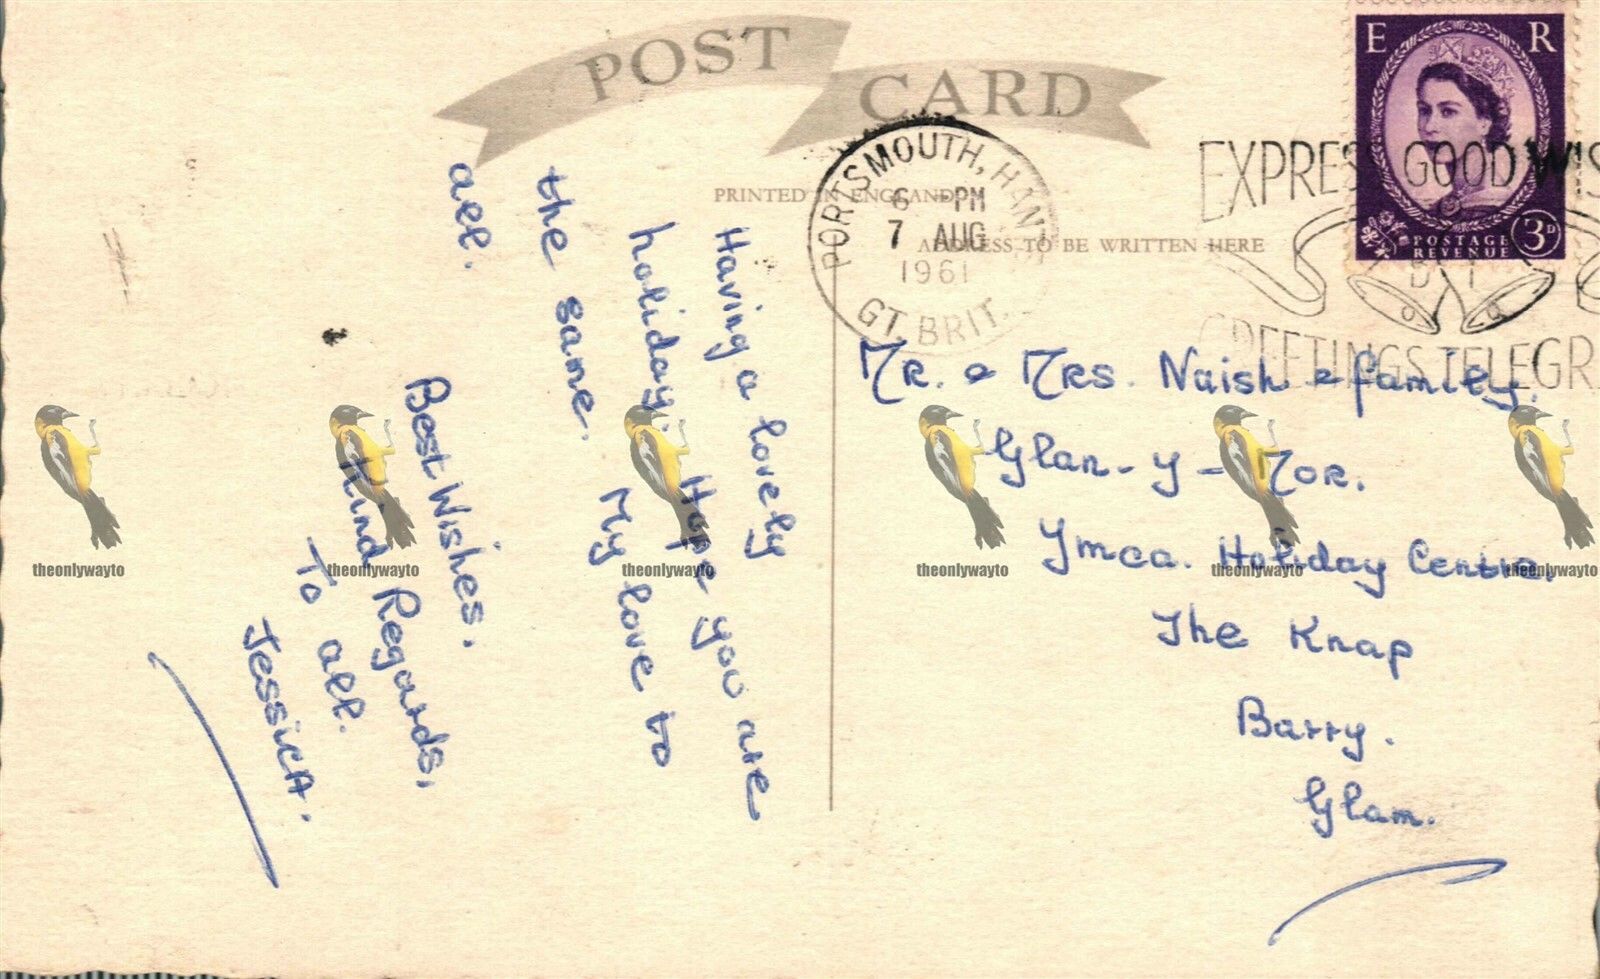 POST CARD
PRINTED IN ENGLAND
ADDRESS TO BE WRITTEN HERE
PORTSMOUTH, HANT
6 PM
7 AUG
1961
GT. BRIT.
E R
POSTAGE
REVENUE
3D
EXPRESS GOOD WIS
BY
GREETINGS TELEGR
Having a lovely
holiday. Hope you are
the same. My love to
all.
Best Wishes,
Kind Regards,
To all.
Jessica.
Mr. & Mrs. Naish & family.
Glan-y-Mor.
Ymca. Holiday Centre.
The Knap
Barry.
Glam.
theonlywayto
theonlywayto
theonlywayto
theonlywayto
theonlywayto
theonlywayto